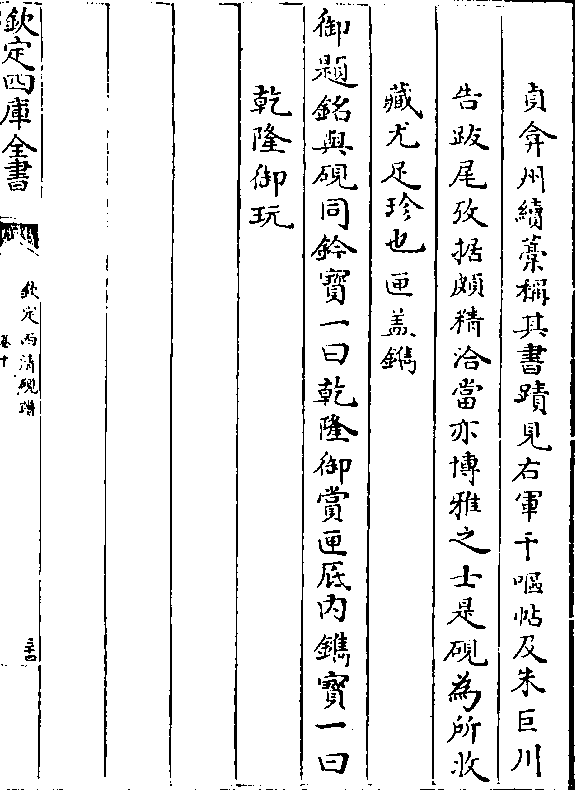 貞弇州續藁稱其書蹟見右軍干嘔帖及朱巨川
告跋尾攷据頗精洽當亦博雅之士是硯為所收
藏尤足珍也匣盖鐫
御題銘與硯同鈐寳一曰乾隆御賞匣底内鐫寳一曰
乾隆御玩
欽定四庫全書
欽定西清硯譜
卷十